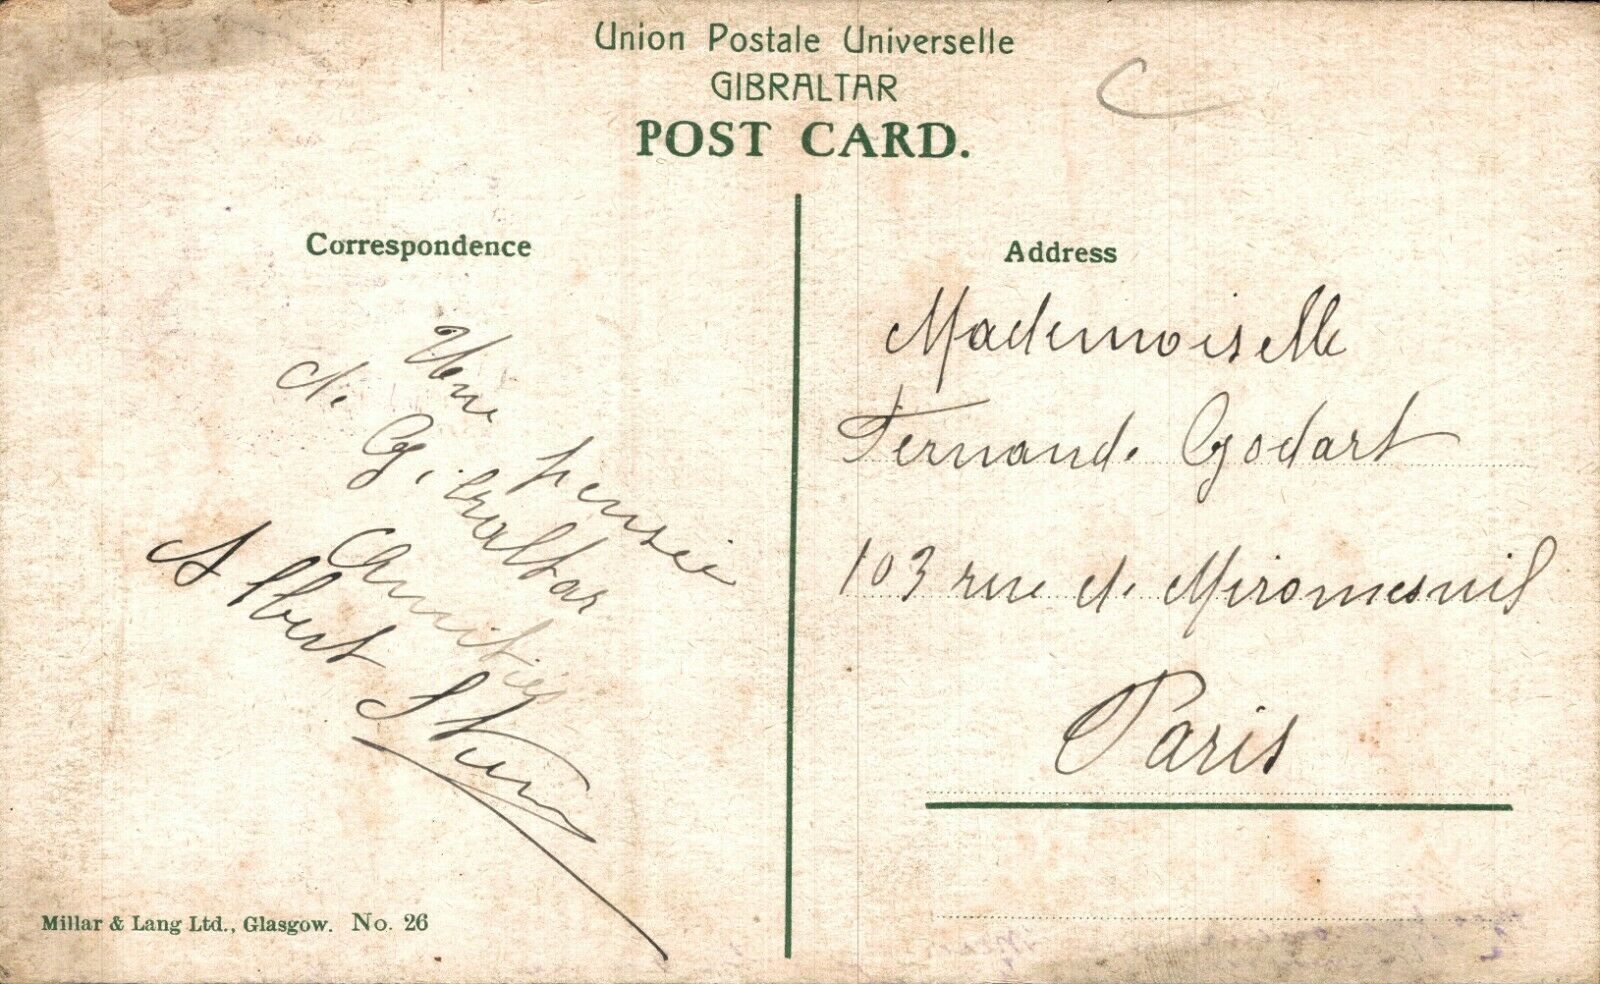 Union Postale Universelle
GIBRALTAR
POST CARD.
Correspondence
Une pensée
de Gibraltar
Amitiés
Albert
Address
Mademoiselle
Fernande Godart
103 rue de Miromesnil
Paris
Millar & Lang Ltd., Glasgow. No. 26